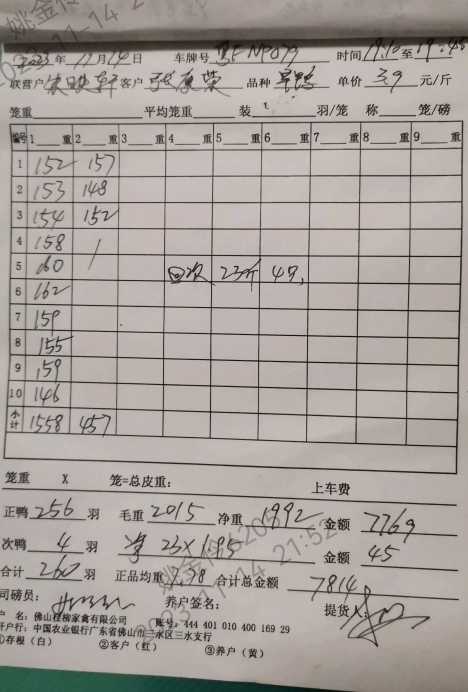 2023 年 11 月 14 日 车牌号 时间 19:10 至 19:48
联营户 客户 张康荣 品种 单价 3.9 元/斤
笼重 平均笼重 装 羽/笼 称 笼/磅
编号 1 重 2 重 3 重 4 重 5 重 6 重 7 重 8 重 9 重
1 152 157
2 153 148
3 154 152
4 158 /
5 160 回次 23斤 4只
6 162
7 159
8 155
9 159
10 146
小计 1558 457
笼重 X 笼=总皮重: 上车费
正鸭 256 羽 毛重 2015 净重 1992 金额 7769
次鸭 4 羽 净 23×1.95 金额 45
合计 260 羽 正品均重 7.78 合计总金额 7814
司磅员: 养户签名: 提货人:
户 名: 佛山 家禽有限公司 账号: 444 401 010 400 169 29
开户行: 中国农业银行广东省佛山市三水区三水支行
①存根(白) ②客户(红) ③养户(黄)
2023-11-14 21:52